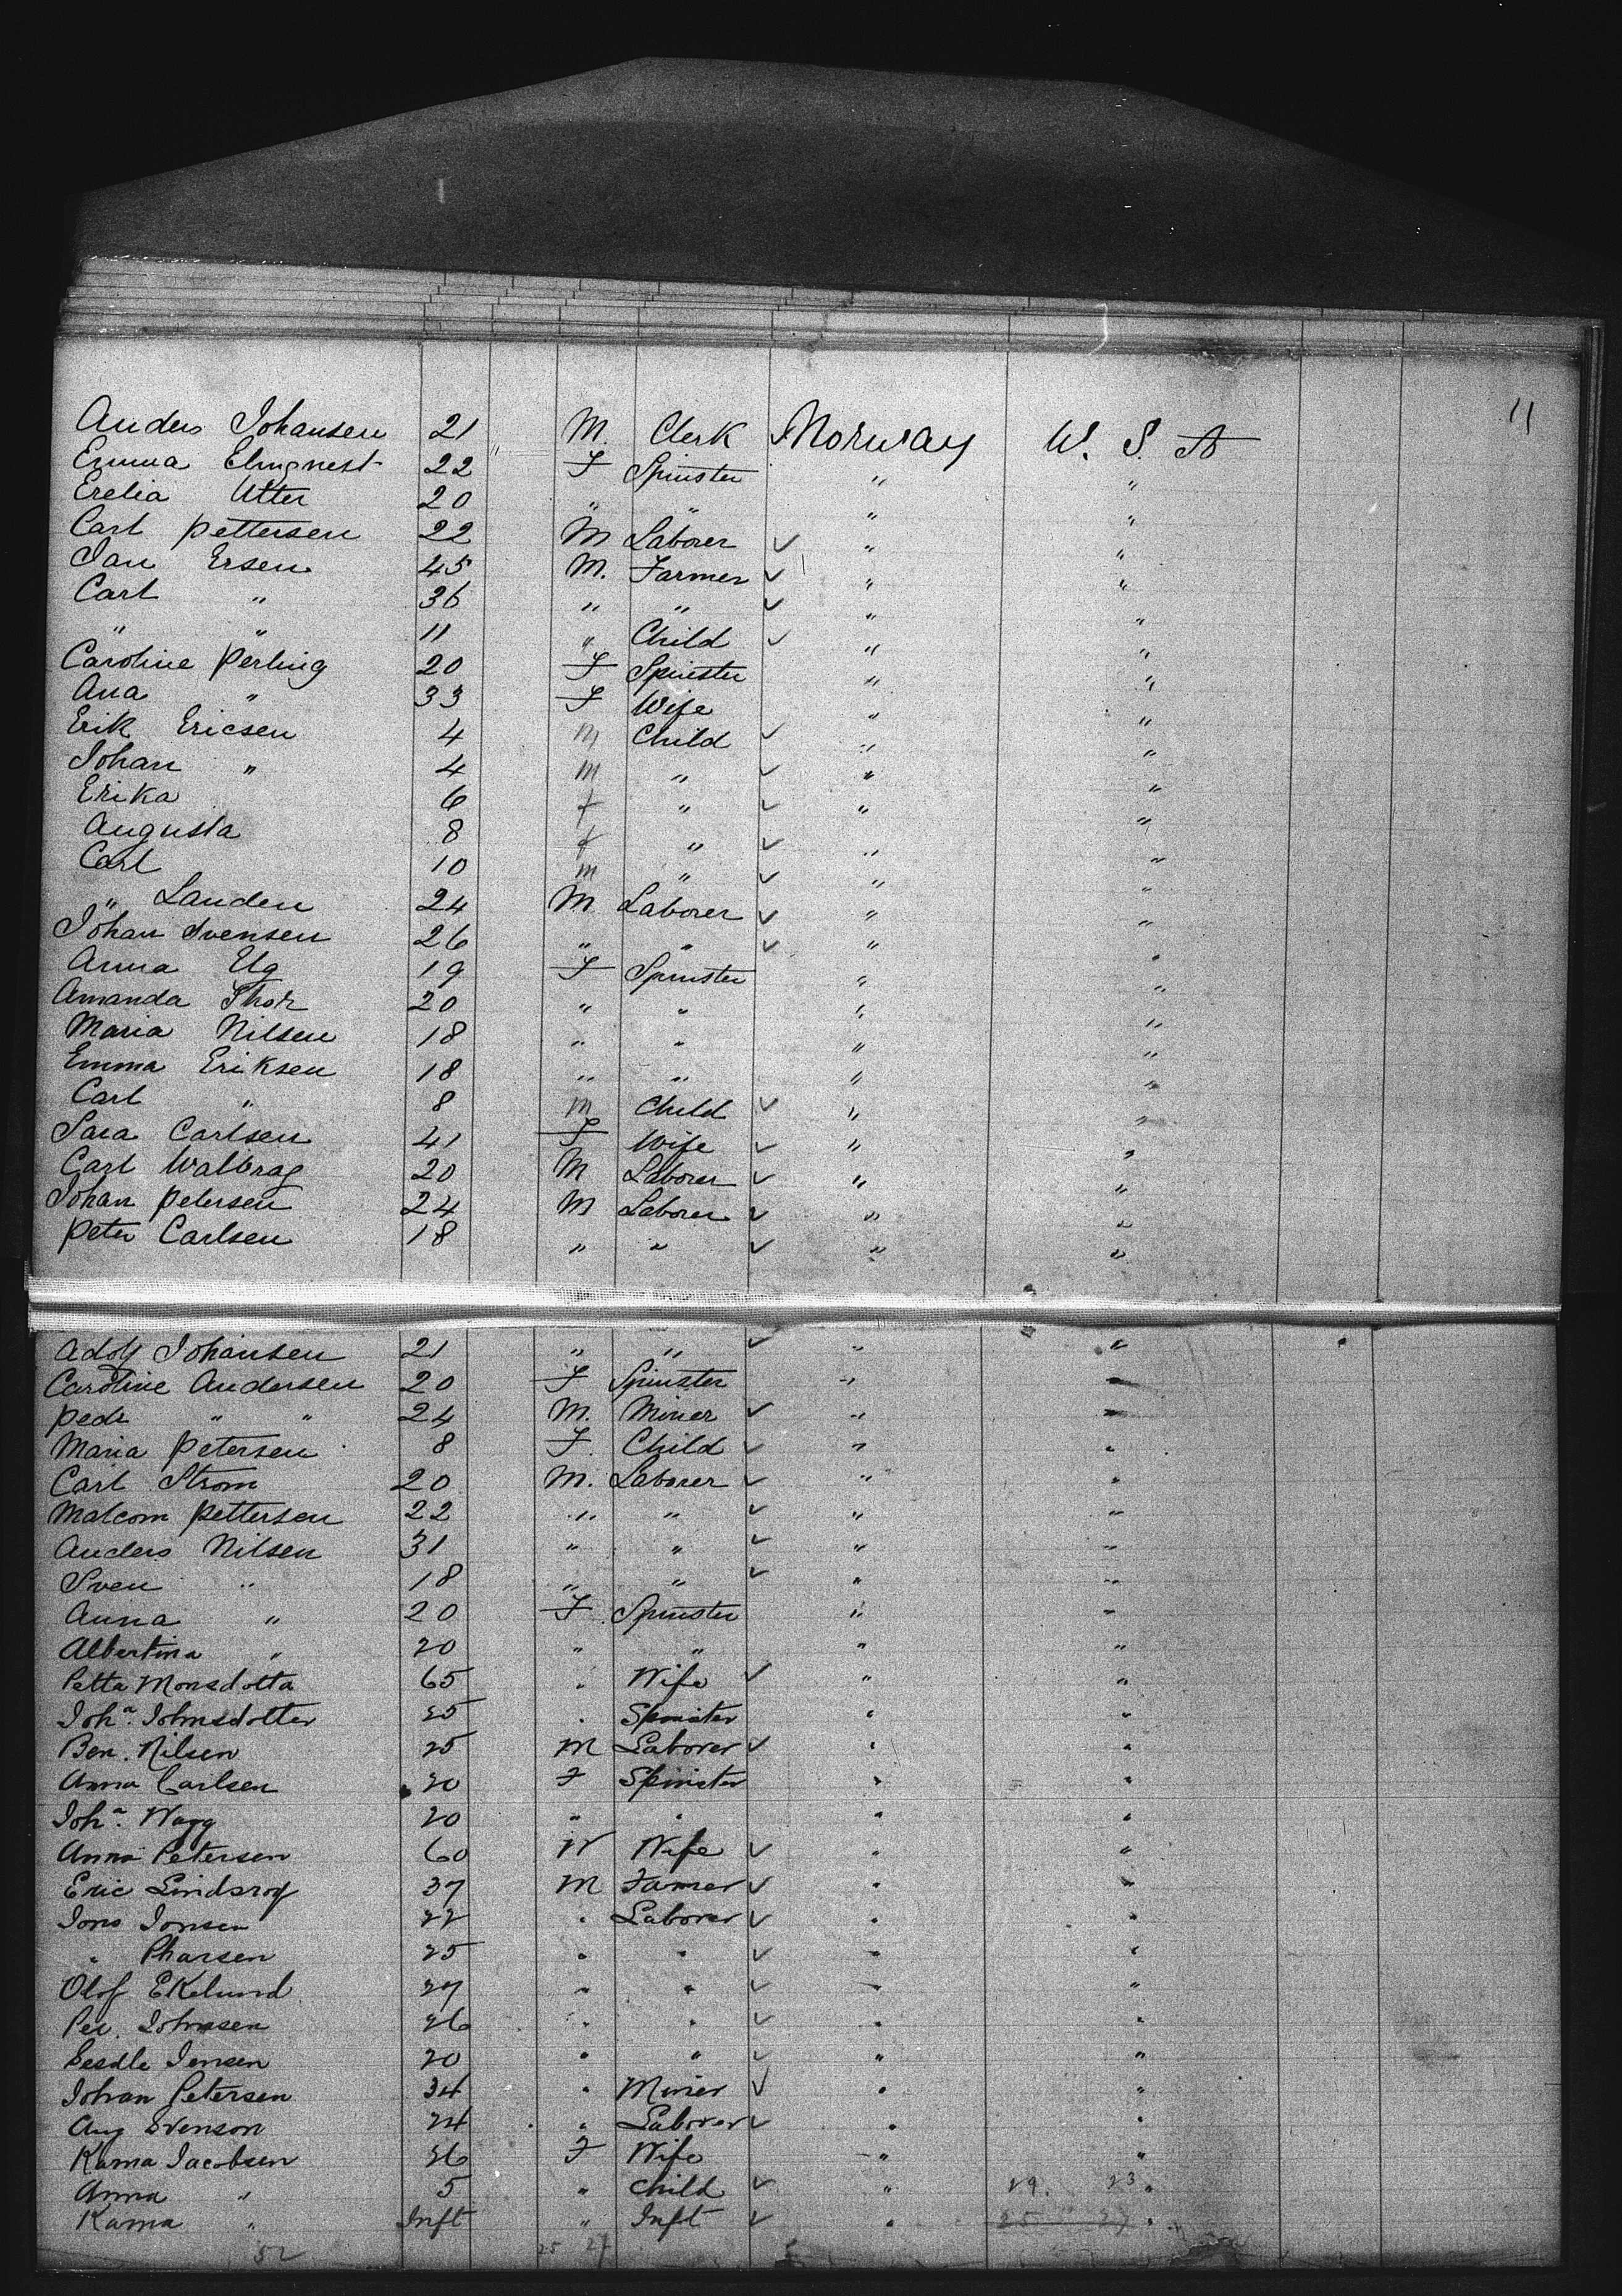 11
Anders Johansen 21 " M. Clerk ✓ Norway U. S. A
Emma Elmqvist 22 F Spinster " "
Erelia Utter 20 " " " "
Carl Pettersen 22 M Laborer ✓ " "
Jan Ersen 45 M. Farmer ✓ " "
Carl " 36 " " ✓ " "
" " 11 " Child ✓ " "
Caroline Perling 20 F Spinster " "
Ana " 33 F Wife " "
Erik Ericsen 4 M Child ✓ " "
Johan " 4 m " ✓ " "
Erika 6 f " ✓ " "
Augusta 8 f " ✓ " "
Carl 10 m " ✓ " "
" Landen 24 M Laborer ✓ " "
Johan Svensen 26 " " ✓ " "
Anna Ug 19 F Spinster " "
Amanda Thor 20 " " " "
Maria Nilsen 18 " " " "
Emma Eriksen 18 " " " "
Carl " 8 m Child ✓ " "
Sara Carlsen 41 F Wife ✓ " "
Carl Walbrag 20 M Laborer ✓ " "
Johan Petersen 24 M Laborer ✓ " "
Peter Carlsen 18 " " ✓ " "
Adolf Johansen 21 " " ✓ " "
Caroline Andersen 20 F Spinster " "
Pedr " " 24 M. Miner ✓ " "
Maria Petersen 8 F. Child ✓ " "
Carl Strom 20 M. Laborer ✓ " "
Malcom Pettersen 22 " " ✓ " "
Anders Nilsen 31 " " ✓ " "
Sven " 18 " " ✓ " "
Anna " 20 F Spinster " "
Albertina " 20 " " " "
Petta Monsdotta 65 " Wife ✓ " "
Joh<sup>a</sup>. Johnsdotter 25 " Spinster " "
Ben. Nilsen 25 M Laborer ✓ " "
Anna Carlsen 20 F Spinster " "
Joh<sup>a</sup>. Wagg 20 " " " "
Anna Petersen 60 W Wife ✓ " "
Eric 37 M Farmer ✓ " "
Jons Jonsen 22 " Laborer ✓ " "
" Pharsen 25 " " ✓ " "
Olof Ekelund 27 " " ✓ " "
Per. Johnsen 26 " " ✓ " "
Jensen 20 " " ✓ " "
Johan Petersen 34 " Miner ✓ " "
Aug Svenson 24 " Laborer ✓ " "
Karna Jacobsen 26 F Wife " "
Anna " 5 " Child ✓ " 29. 23 "
Karna " Inft " Inft ✓ " 25 27 "
52 25 27